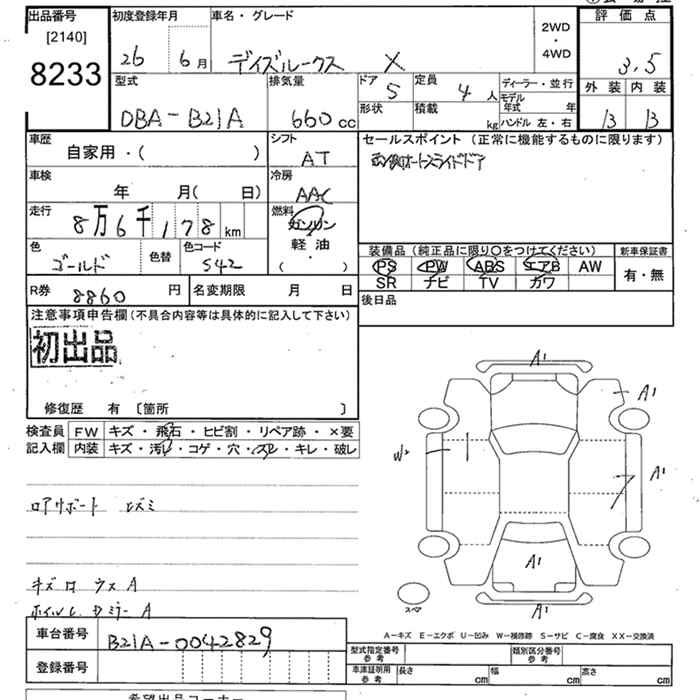 出品番号
[2140]
8233
初度登録年月
26 6月
車名・グレード
デイズルークス X
2WD
・
4WD
評価点
3.5
外装 内装
B B
型式
DBA-B21A
排気量
660cc
ドア
5
形状
定員
4人
積載
kg
ディーラー・並行
モデル年式 年
ハンドル 左・右
車歴
自家用・( )
シフト
AT
セールスポイント(正常に機能するものに限ります)
車検
年 月( 日)
冷房
AAC
走行
8万6千178km
燃料
ガソリン
軽・油
・
( )
色
ゴールド
色替
色コード
S42
装備品(純正品に限り○をつけてください)
PS PW ABS エアB AW
SR ナビ TV カワ
新車保証書
有・無
R券 8860円
名変期限 月 日
後日品
注意事項申告欄(不具合内容等は具体的に記入して下さい)
初出品
修復歴 有 〔箇所 〕
検査員記入欄
FW キズ・飛石・ヒビ割・リペア跡・×要
内装 キズ・汚れ・コゲ・穴・スレ・キレ・破レ
ロアサポート ユズミ
キズ 口 ウス A
A1
A1
W2
A1
A1
A1
スペア
A-キズ E-エクボ U-凹み W-補修跡 S-サビ C-腐食 XX-交換済
車台番号 B21A-0042829
登録番号
型式指定番号参考
類別区分番号参考
車庫証明用参考 長さ cm 幅 cm 高さ cm
希望出品コーナー